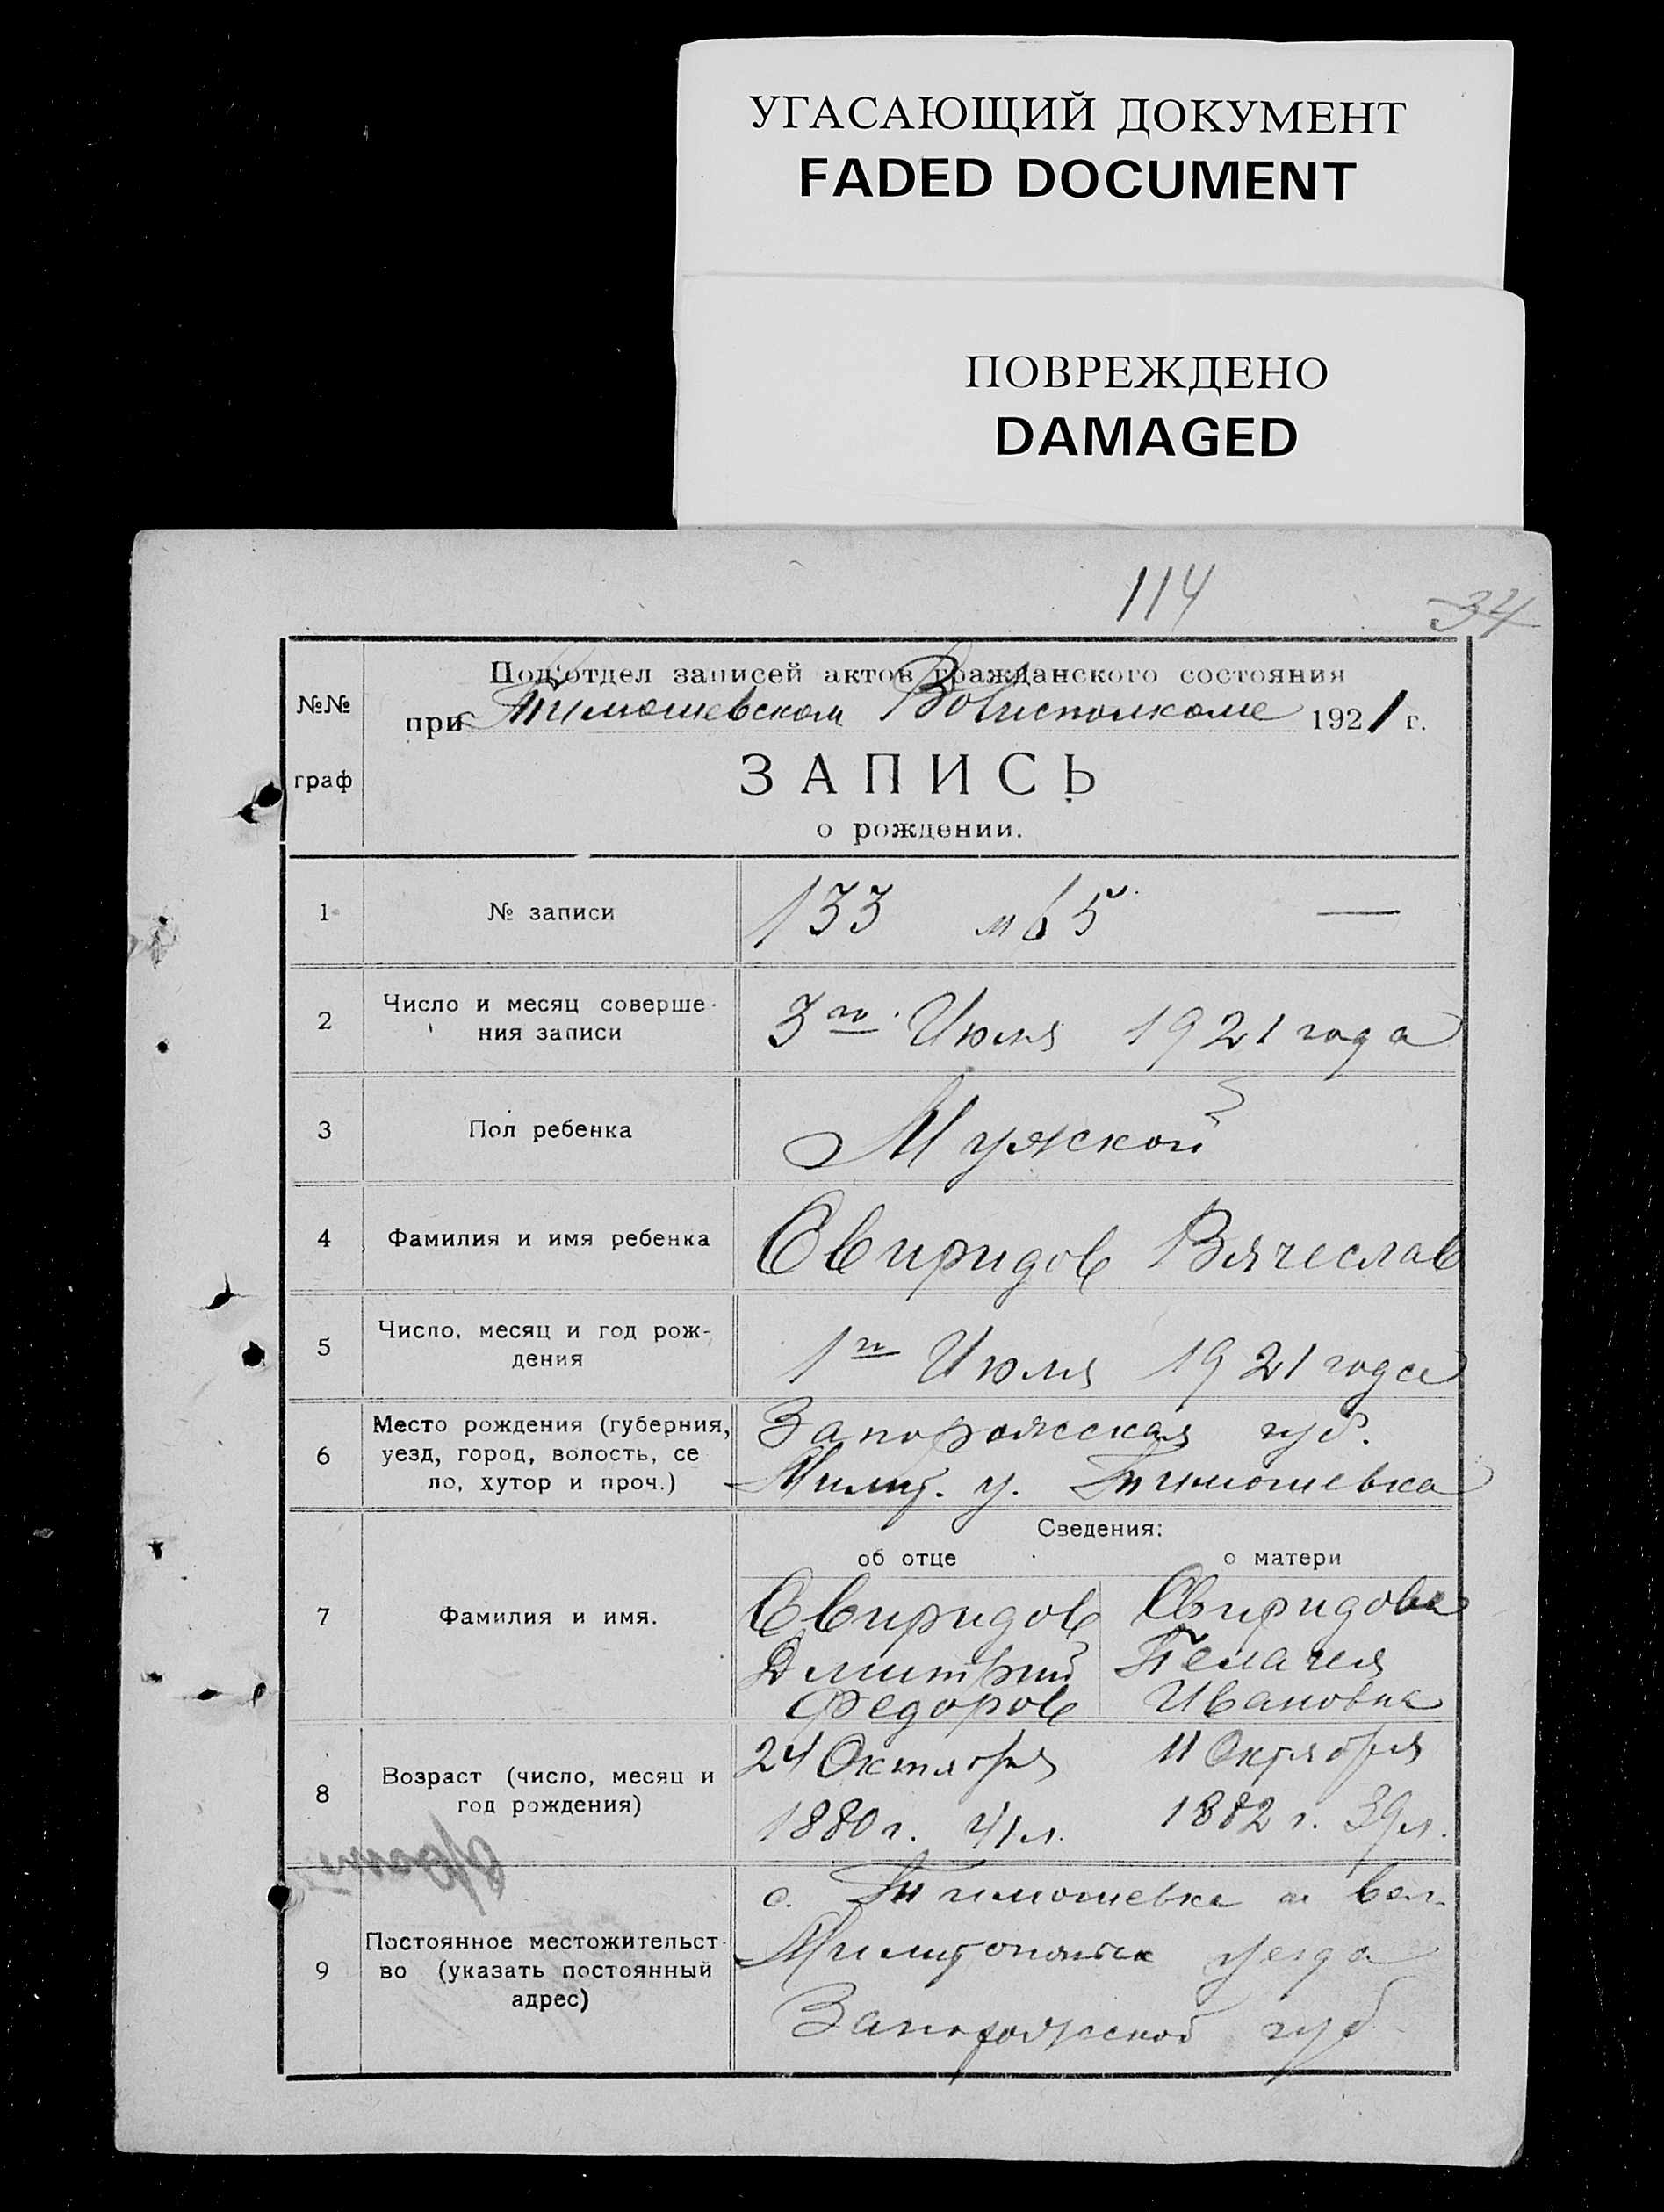 УГАСАЮЩИЙ ДОКУМЕНТ
FADED DOCUMENT
ПОВРЕЖДЕНО
DAMAGED
114
34
№№
граф
Под'отдел записей актов гражданского состояния
при Тимошевском Волисполкоме 1921 г.
ЗАПИСЬ
о рождении.
1 № записи 133 м 65
2 Число и месяц соверше-
ния записи
3го Июля 1921 года
3 Пол ребенка Мужской
4 Фамилия и имя ребенка Свиридов Вячеслав
5 Число, месяц и год рож-
дения
1го Июля 1921 года
6 Место рождения (губерния,
уезд, город, волость, се
ло, хутор и проч.)
Запорожская губ.
Милит. у. Тимошевка
Сведения:
об отце о матери
7 Фамилия и имя.
Свиридов
Дмитрий
Федоров
Свиридова
Пелагея
Ивановна
8 Возраст (число, месяц и
год рождения)
24 Октября
1880 г. 41 л.
11 Октября
1882 г. 39 л.
9 Постоянное местожительст-
во (указать постоянный
адрес)
с. Тимошевка и вол.
Милитопольск уезда
Запорожской губ